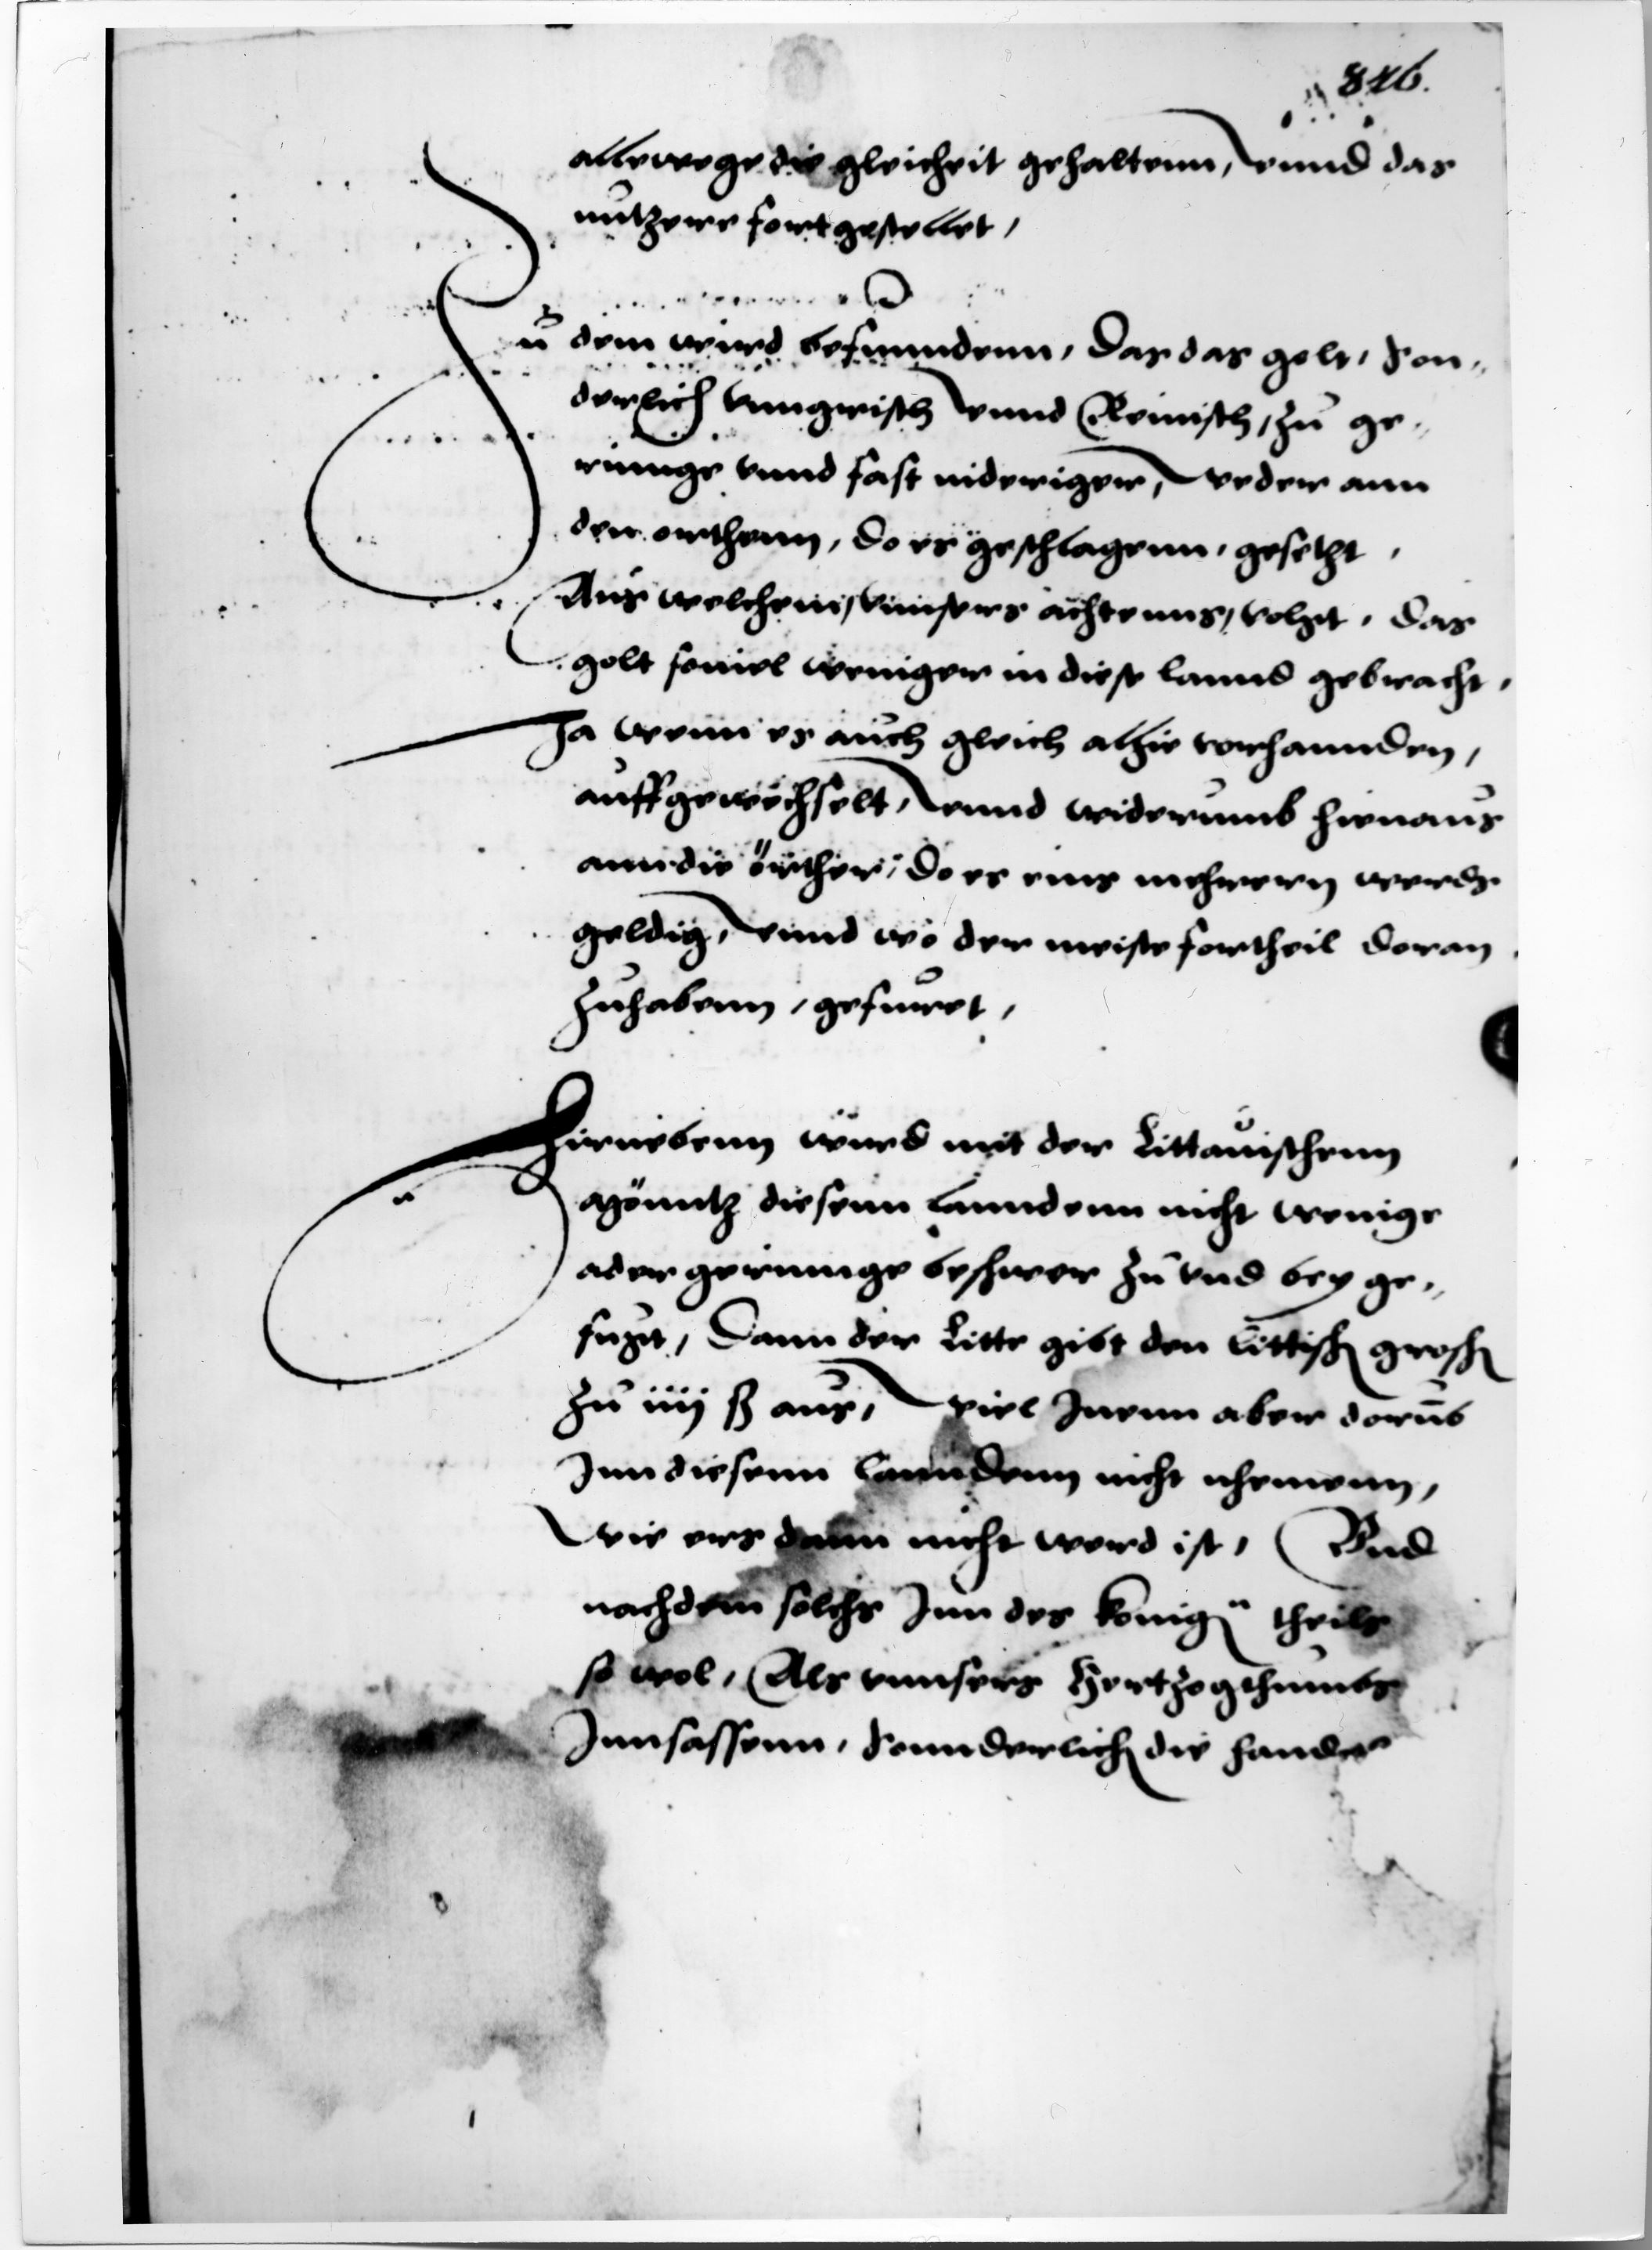 846.
allewege die gleicheit gehaltenn, vnnd das
nutzere fortgestellet,
Zu dem wurd befunndenn, Das das golt, son„
derlich vnngrisch vnnd Reinisch, zu ge„
rinnge vnnd fast nideriger, weder ann
den orthenn, do es geschlagenn, gesetzt,
Aus welchem, vnnsers achtenns, volgt, das
golt souiel weniger in diese lannd gebracht,
Ja wenn es auch gleich alhie vorhannden,
auffgewechselt, vnnd widerumb hienaus
ann die örther, do es eins mehrern werds
geldig, vnnd wo der meiste fortheil doran
zuhabenn, gefuret,
Hirnebenn wurd mit der Littauischenn
Möuntz diesenn lanndenn nicht wenige
ader gerinnge beschwer zu vnd bey ge„
fugt, Dann der Litte gibt den Littisch grosch
zu iiij ß aus, wiel Inenn aber dorumb
Inn diesenn lanndenn nicht nhemenn,
wie ers dann nicht werd ist, Vnd
nachdem solchs Inn des konign theils
so wol, Als vnnsers Hertzogthumbs
Innsassenn, sonnderlich die handes